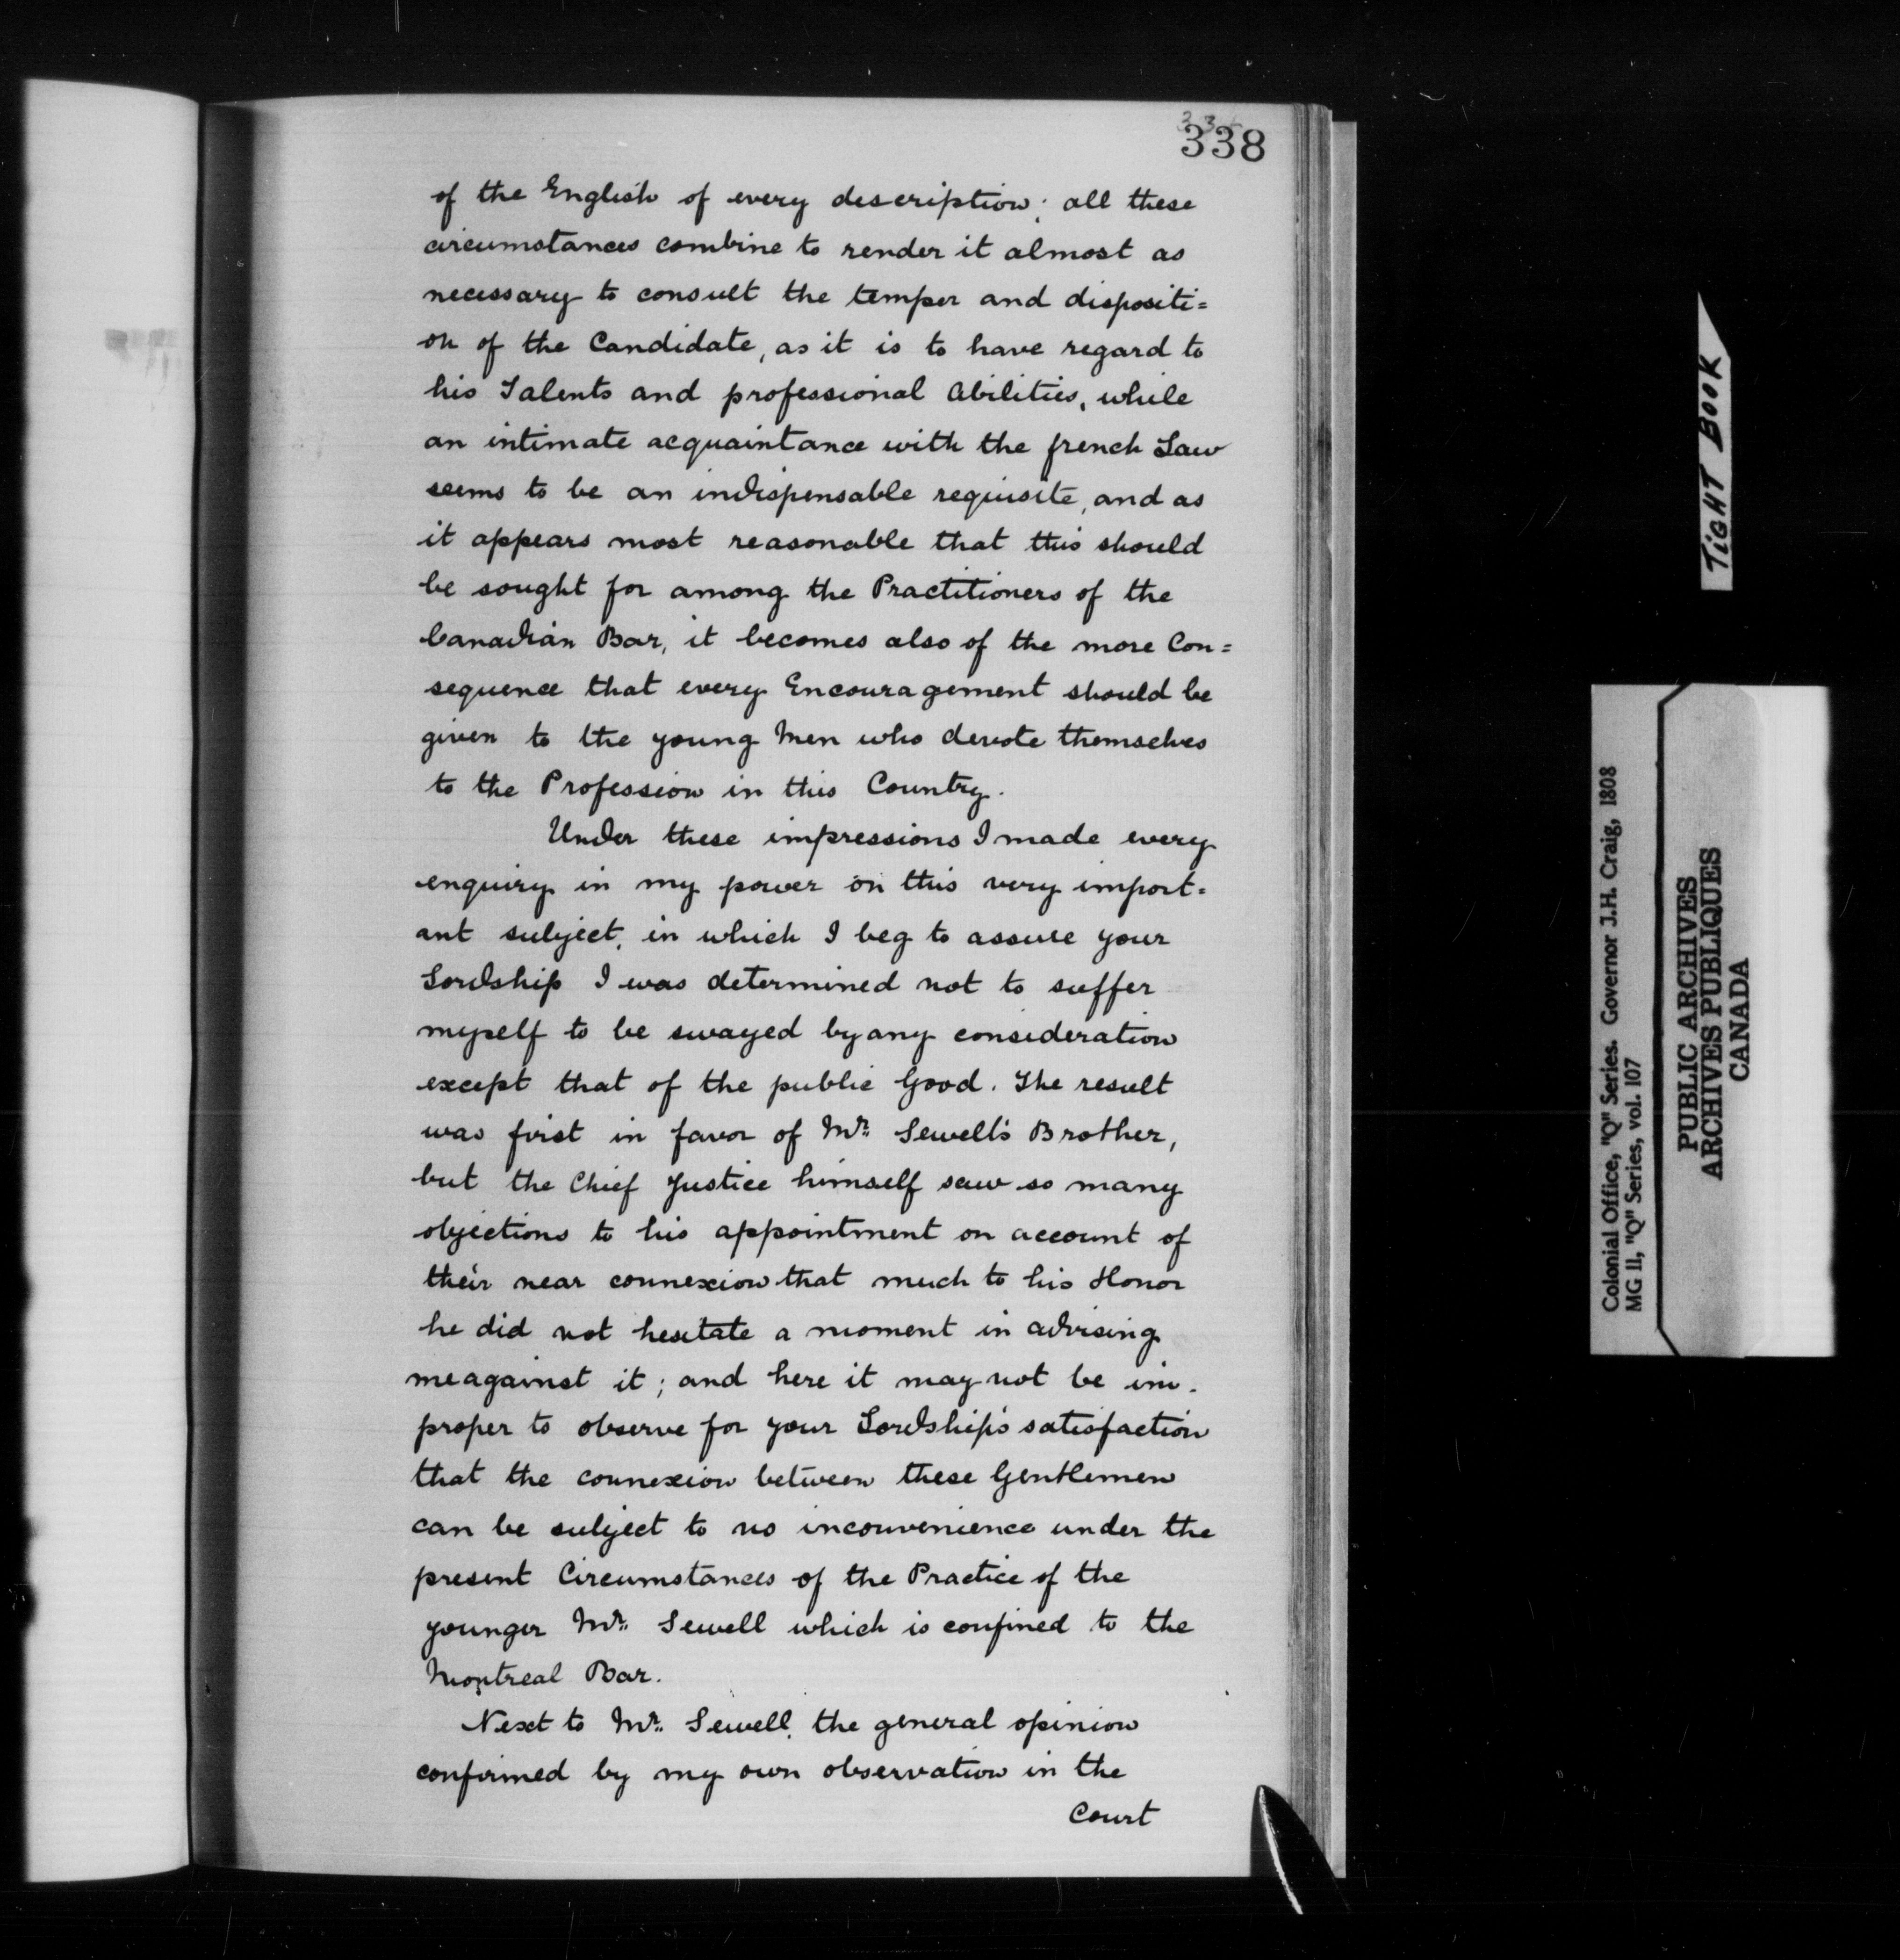 338
of the English of every description; all these
circumstances combine to render it almost as
necessary to consult the temper and dispositi=
on of the Candidate, as it is to have regard to
his Talents and professional Abilities, while
an intimate acquaintance with the french Law
seems to be an indispensable requisite, and as
it appears most reasonable that this should
be sought for among the Practitioners of the
Canadian Bar, it becomes also of the more Con=
sequence that every Encouragement should be
given to the young Men who devote themselves
to the Profession in this Country.
Under these impressions I made every
enquiry in my power on this very import=
ant subject, in which I beg to assure your
Lordship I was determined not to suffer
myself to be swayed by any consideration
except that of the public Good. The result
was first in favor of Mr. Sewell's Brother,
but the Chief Justice himself saw so many
objections to his appointment on account of
their near connexion that much to his Honor
he did not hesitate a moment in advising
me against it; and here it may not be im-
proper to observe for your Lordship's satisfaction
that the connexion between these Gentlemen
can be subject to no inconvenience under the
present Circumstances of the Practice of the
younger Mr. Sewell which is confined to the
Montreal Bar.
Next to Mr. Sewell, the general opinion
confirmed by my own observation in the
Court
TIGHT BOOK
Colonial Office, "Q" Series. Governor J.H. Craig, 1808
MG 11, "Q" Series, vol. 107
PUBLIC ARCHIVES
ARCHIVES PUBLIQUES
CANADA